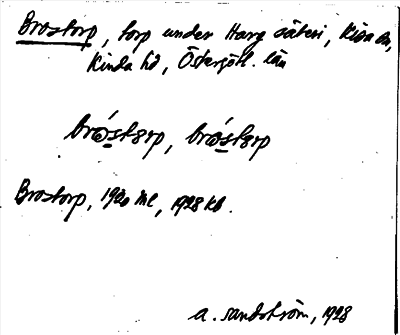 Brostorp, torp under Harg säteri, Kisa sn,
Kinda hd, Östergötl. län
bró̱storp, bró̱storp
Brostorp, 1920 ML, 1928 kb.
A. Sandström, 1928